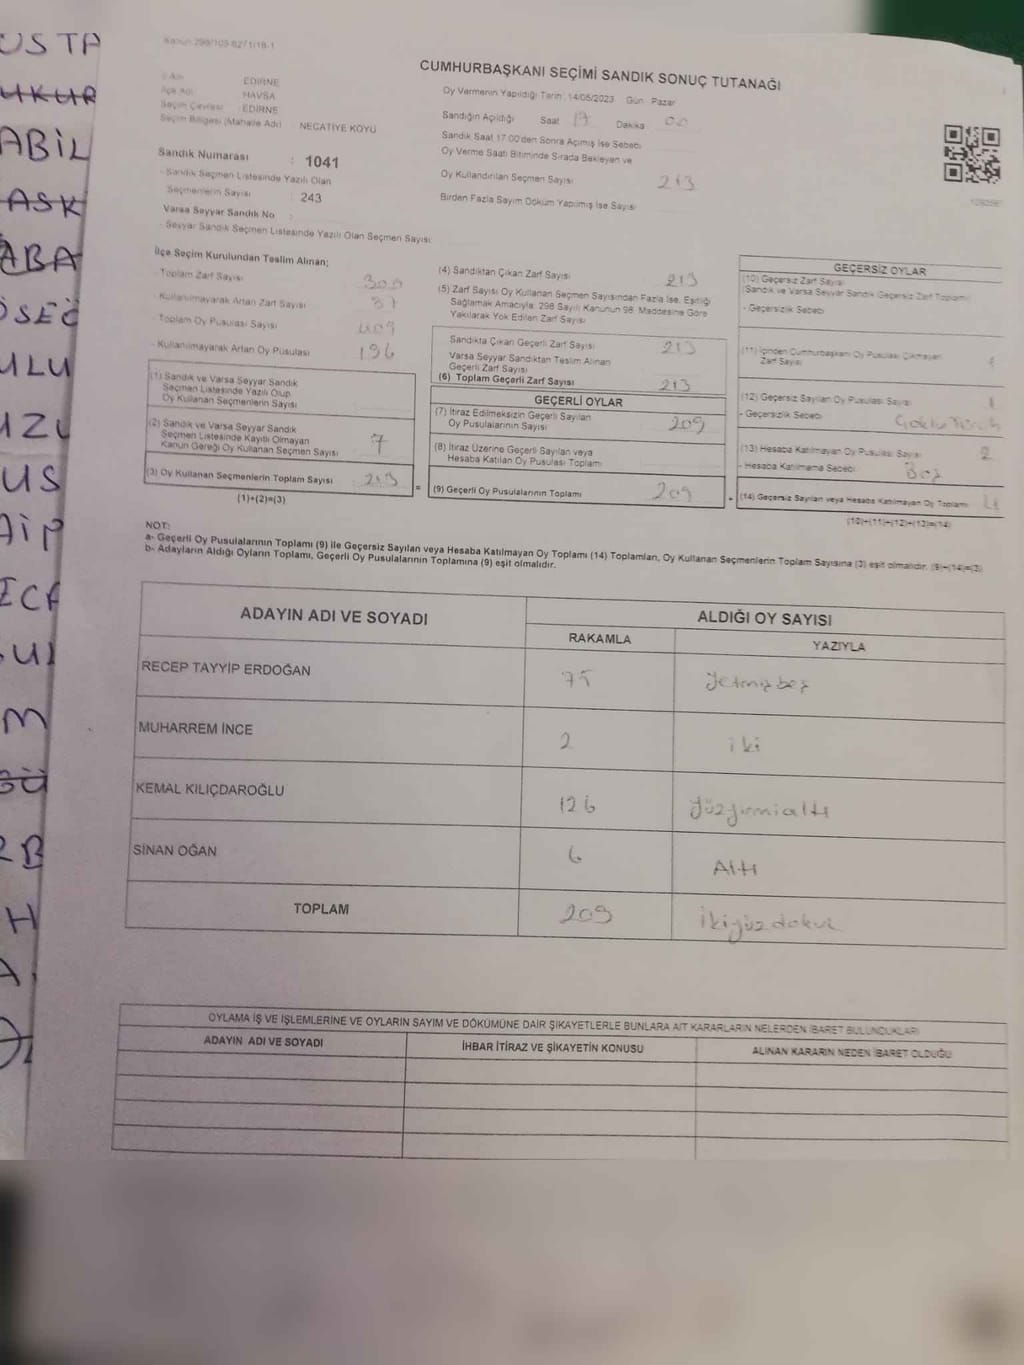 USTA
UKUR
ABİL
ASK
ABA
ÖSEÇ
ULU
UZU
US
AİP
ECA
SUL
M
GÜ
RB
H
A.
Kanun 298/105-6271/18-1
CUMHURBAŞKANI SEÇİMİ SANDIK SONUÇ TUTANAĞI
İl Adı EDİRNE
İlçe Adı HAVSA
Seçim Çevresi EDİRNE
Seçim Bölgesi (Mahalle Adı) NECATİYE KÖYÜ
Sandık Numarası : 1041
- Sandık Seçmen Listesinde Yazılı Olan
Seçmenlerin Sayısı : 243
Varsa Seyyar Sandık No :
- Seyyar Sandık Seçmen Listesinde Yazılı Olan Seçmen Sayısı:
Oy Vermenin Yapıldığı Tarih: 14/05/2023 Gün Pazar
Sandığın Açıldığı Saat 17 Dakika 00
Sandık Saat 17.00'den Sonra Açılmış İse Sebebi
Oy Verme Saati Bitiminde Sırada Bekleyen ve
Oy Kullandırılan Seçmen Sayısı 213
Birden Fazla Sayım Döküm Yapılmış İse Sayısı
İlçe Seçim Kurulundan Teslim Alınan;
- Toplam Zarf Sayısı 300
- Kullanılmayarak Artan Zarf Sayısı 87
- Toplam Oy Pusulası Sayısı 409
- Kullanılmayarak Artan Oy Pusulası 196
(1) Sandık ve Varsa Seyyar Sandık
Seçmen Listesinde Yazılı Olup
Oy Kullanan Seçmenlerin Sayısı
(2) Sandık ve Varsa Seyyar Sandık
Seçmen Listesinde Kayıtlı Olmayan
Kanun Gereği Oy Kullanan Seçmen Sayısı 7
(3) Oy Kullanan Seçmenlerin Toplam Sayısı 213
(1)+(2)=(3)
(4) Sandıktan Çıkan Zarf Sayısı 213
(5) Zarf Sayısı Oy Kullanan Seçmen Sayısından Fazla İse, Eşitliği
Sağlamak Amacıyla, 298 Sayılı Kanunun 98. Maddesine Göre
Yakılarak Yok Edilen Zarf Sayısı
Sandıkta Çıkan Geçerli Zarf Sayısı 213
Varsa Seyyar Sandıktan Teslim Alınan
Geçerli Zarf Sayısı
(6) Toplam Geçerli Zarf Sayısı 213
GEÇERLİ OYLAR
(7) İtiraz Edilmeksizin Geçerli Sayılan
Oy Pusulalarının Sayısı 209
(8) İtiraz Üzerine Geçerli Sayılan veya
Hesaba Katılan Oy Pusulası Toplamı
= (9) Geçerli Oy Pusulalarının Toplamı 209
GEÇERSİZ OYLAR
(10) Geçersiz Zarf Sayısı
(Sandık ve Varsa Seyyar Sandık Geçersiz Zarf Toplamı)
- Geçersizlik Sebebi
(11) İçinden Cumhurbaşkanı Oy Pusulası Çıkmayan
Zarf Sayısı 1
(12) Geçersiz Sayılan Oy Pusulası Sayısı 1
- Geçersizlik Sebebi
(13) Hesaba Katılmayan Oy Pusulası Sayısı 2
- Hesaba Katılmama Sebebi Boş
+ (14) Geçersiz Sayılan veya Hesaba Katılmayan Oy Toplamı 4
(10)+(11)+(12)+(13)=(14)
NOT:
a- Geçerli Oy Pusulalarının Toplamı (9) ile Geçersiz Sayılan veya Hesaba Katılmayan Oy Toplamı (14) Toplamları, Oy Kullanan Seçmenlerin Toplam Sayısına (3) eşit olmalıdır. (9)+(14)=(3)
b- Adayların Aldığı Oyların Toplamı, Geçerli Oy Pusulalarının Toplamına (9) eşit olmalıdır.
ADAYIN ADI VE SOYADI ALDIĞI OY SAYISI
RAKAMLA YAZIYLA
RECEP TAYYİP ERDOĞAN 75 Yetmişbeş
MUHARREM İNCE 2 iki
KEMAL KILIÇDAROĞLU 126 Yüzyirmialtı
SİNAN OĞAN 6 Altı
TOPLAM 209 İkiyüzdokuz
OYLAMA İŞ VE İŞLEMLERİNE VE OYLARIN SAYIM VE DÖKÜMÜNE DAİR ŞİKAYETLERLE BUNLARA AİT KARARLARIN NELERDEN İBARET BULUNDUKLARI
ADAYIN ADI VE SOYADI İHBAR İTİRAZ VE ŞİKAYETİN KONUSU ALINAN KARARIN NEDEN İBARET OLDUĞU